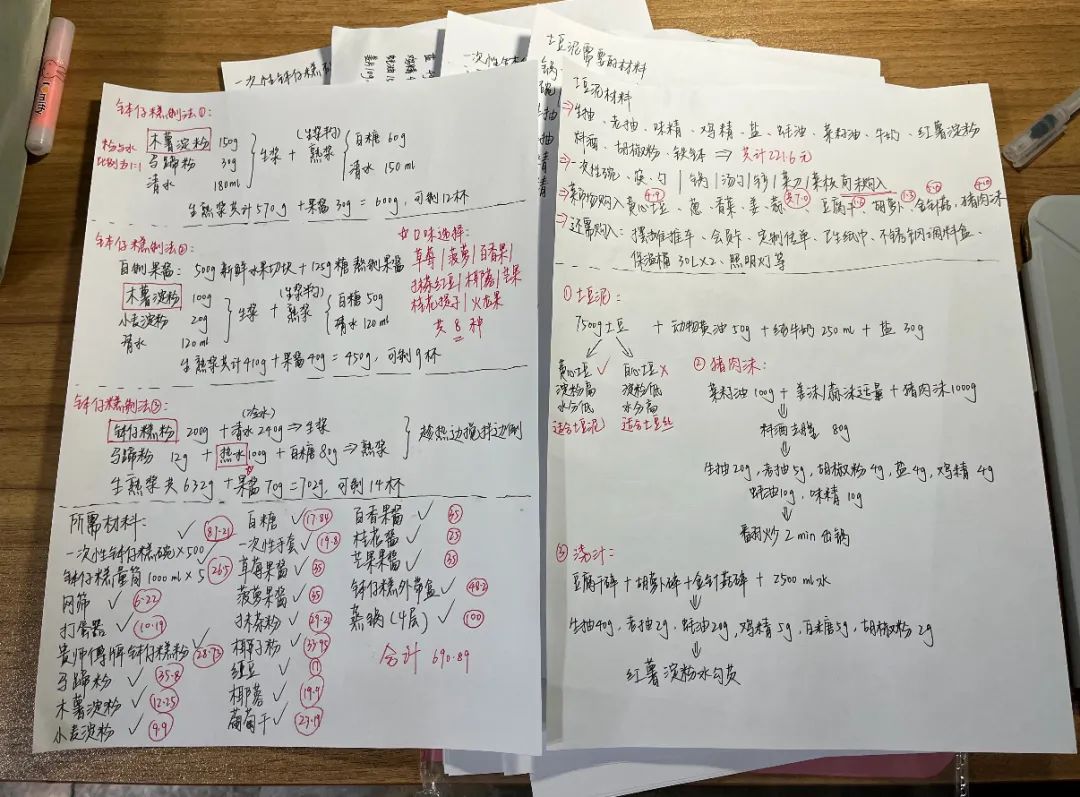 钵仔糕制法①:
粉与水
比例为1:1
木薯淀粉 150g
马蹄粉 30g
清水 180ml
生浆 + (生浆构) 熟浆
白糖 60g
清水 150ml
生熟浆共计570g + 果酱30g = 600g, 可制12杯
钵仔糕制法②:
自制果酱: 500g新鲜水果切块 + 125g糖熬制果酱
木薯淀粉 100g
小麦淀粉 20g
清水 120ml
生浆 + (生浆构) 熟浆
白糖 50g
清水 120ml
生熟浆共计410g + 果酱40g = 450g, 可制9杯
口味选择:
草莓|菠萝|百香果|
抹茶红豆|椰椰|芒果
桂花提子|火龙果
共8种
钵仔糕制法③:
(冷水)
钵仔糕粉 200g + 清水240g ⇒ 生浆
马蹄粉 12g + 热水100g + 白糖80g ⇒ 熟浆
趁热边搅拌边倒
生熟浆共632g + 果酱70g = 702g, 可制14杯
所需材料:
一次性钵仔糕碗×500 ✓ 87.21
钵仔糕量筒1000ml×5 26.5
网筛 ✓ 6.22
打蛋器 ✓ 10.19
贵师傅牌钵仔糕粉 ✓ 28.73
马蹄粉 ✓ 35.8
木薯淀粉 ✓ 12.25
小麦淀粉 ✓ 4.9
白糖 ✓ 17.84
一次性手套 ✓ 19.8
草莓果酱 ✓ 35
菠萝果酱 ✓ 35
抹茶粉 ✓ 39.21
椰子粉 ✓ 33.95
红豆 ✓ 17
椰蓉 ✓ 19.9
葡萄干 ✓ 23.19
百香果酱 ✓ 35
桂花酱 ✓ 25
芒果果酱 ✓ 35
钵仔糕外带盒 ✓ 48.2
蒸锅(4层) ✓ 100
合计 690.89
土豆泥需要的材料
土豆泥材料
⇒生抽、老抽、味精、鸡精、盐、蚝油、菜籽油、牛奶、红薯淀粉
料酒、胡椒粉、铁钵 ⇒ 共计221.6元
⇒一次性碗、筷、勺 | 锅 | 汤勺 | 铲 | 菜刀 | 菜板 间未购入
⇒菜市场购入黄心土豆、葱、香菜、姜、蒜、豆腐干、胡萝卜、金针菇、猪肉沫
⇒还需购入: 摆摊推车、会员卡、定制传单、卫生纸巾、不锈钢调料盒、
保温桶30L×2、照明灯等
① 土豆泥:
7500g土豆 + 动物黄油50g + 纯牛奶250ml + 盐30g
黄心土豆✓ 白心土豆×
淀粉高 淀粉低
水分低 水分高
适合土豆泥 适合土豆丝
② 猪肉沫:
菜籽油100g + 姜沫/蒜沫适量 + 猪肉沫1000g
料酒去腥 80g
生抽20g, 老抽5g, 胡椒粉4g, 盐4g, 鸡精4g
蚝油10g, 味精10g
翻炒2min出锅
③ 浇汁:
豆腐干碎 + 胡萝卜碎 + 金针菇碎 + 2500ml水
生抽40g, 老抽2g, 蚝油20g, 鸡精5g, 白糖5g, 胡椒粉2g
红薯淀粉水勾芡